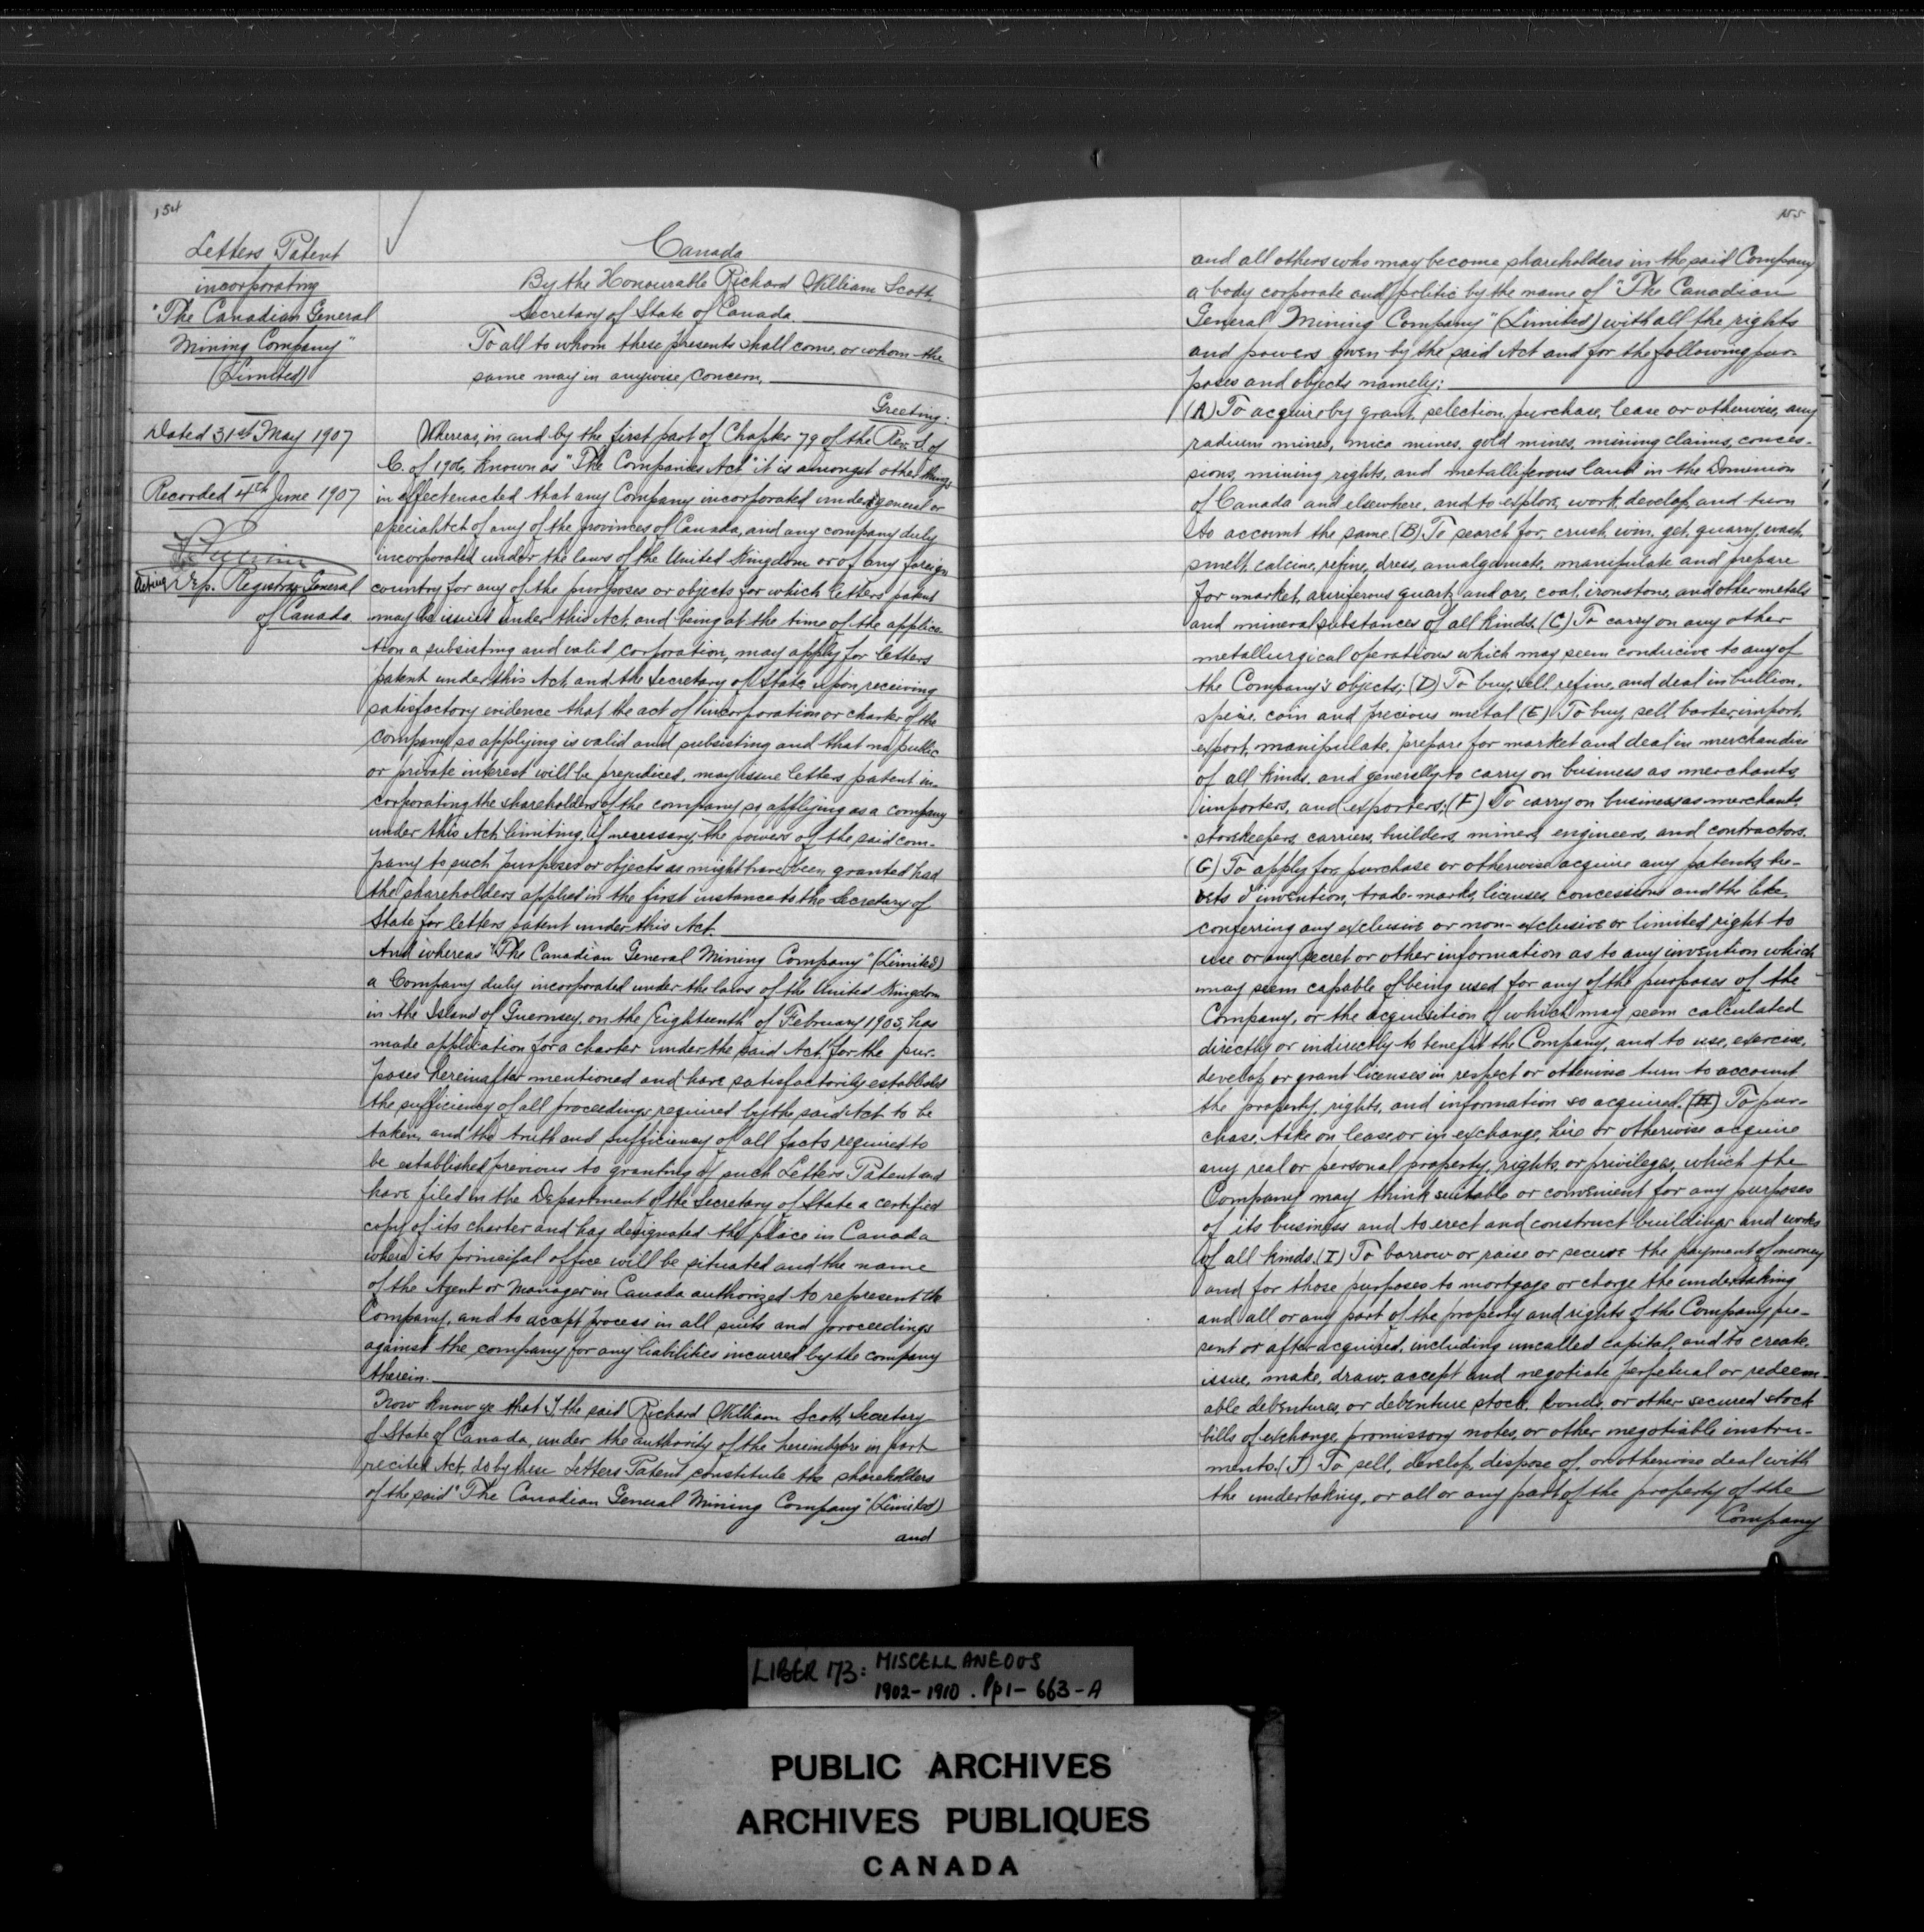 154
Letters Patent
incorporating
"The Canadian General
Mining Company"
(Limited)
Dated 31st May 1907
Recorded 4th June 1907
Acting Dep. Registrar General
of Canada.
Canada
By the Honourable Richard William Scott
Secretary of State of Canada
To all to whom these presents shall come, or whom the
same may in anywise concern,
Greeting:
Whereas, in and by the first part of Chapter 79 of the Rev. S. of
C. of 1906, known as "The Companies Act" it is amongst other things
in effect enacted that any Company incorporated under general or
special Act of any of the provinces of Canada, and any company duly
incorporated under the laws of the United Kingdom or of any foreign
country for any of the purposes or objects for which letters patent
may be issued under this Act, and being at the time of the applica-
tion a subsisting and valid corporation, may apply for letters
patent under this Act, and the Secretary of State, upon receiving
satisfactory evidence that the act of incorporation or charter of the
company so applying is valid and subsisting and that no public
or private interest will be prejudiced, may issue letters patent in-
corporating the shareholders of the company so applying as a company
under this Act limiting, if necessary, the powers of the said com-
pany to such purposes or objects as might have been granted had
the shareholders applied in the first instance to the Secretary of
State for letters patent under this Act.
And whereas "The Canadian General Mining Company" (Limited)
a Company duly incorporated under the laws of the United Kingdom
in the Island of Guernsey, on the Eighteenth of February 1905, has
made application for a charter under the said Act, for the pur-
poses hereinafter mentioned and have satisfactorily established
the sufficiency of all proceedings required by the said Act to be
taken, and the truth and sufficiency of all facts required to
be established previous to granting of such Letters Patent and
have filed in the Department of the Secretary of State a certified
copy of its charter and has designated the place in Canada
where its principal office will be situated and the name
of the Agent or Manager in Canada authorized to represent the
Company, and to accept process in all suits and proceedings
against the company for any liabilities incurred by the company
therein.
Now know ye that I, the said Richard William Scott, Secretary
of State of Canada, under the authority of the hereinbefore in part
recited Act, do by these Letters Patent constitute the shareholders
of the said "The Canadian General Mining Company" (Limited)
and
155
and all others who may become shareholders in the said Company
a body corporate and politic by the name of "The Canadian
General Mining Company" (Limited) with all the rights
and powers given by the said Act and for the following pur-
poses and objects namely:
(A) To acquire by grant, selection, purchase, lease or otherwise, any
radium mines, mica mines, gold mines, mining claims, conces-
sions, mining rights, and metalliferous land in the Dominion
of Canada and elsewhere, and to explore, work, develop, and turn
to account the same. (B) To search for, crush, win, get, quarry, wash,
smelt, calcine, refine, dress, amalgamate, manipulate and prepare
for market, auriferous quartz and ore, coal, ironstone, and other metals
and mineral substances of all kinds. (C) To carry on any other
metallurgical operations which may seem conducive to any of
the Company's objects; (D) To buy, sell, refine, and deal in bullion,
specie, coin and precious metal (E) To buy, sell, barter, import,
export, manipulate, prepare for market and deal in merchandise
of all kinds, and generally to carry on business as merchants,
importers, and exporters; (F) To carry on business as merchants,
storekeepers, carriers, builders, miners, engineers, and contractors.
(G) To apply for, purchase or otherwise acquire any patents, bre-
vets d'invention, trade-marks, licenses, concessions and the like,
conferring any exclusive or non-exclusive or limited right to
use or any secret or other information as to any invention which
may seem capable of being used for any of the purposes of the
Company, or the acquisition of which may seem calculated
directly or indirectly to benefit the Company, and to use, exercise,
develop, or grant licenses in respect or otherwise turn to account
the property, rights, and information so acquired. (H) To pur-
chase, take on lease or in exchange, hire or otherwise acquire
any real or personal property, rights or privileges, which the
Company may think suitable or convenient for any purposes
of its business and to erect and construct buildings and works
of all kinds. (I) To borrow or raise or secure the payment of money
and for those purposes to mortgage or charge the undertaking
and all or any part of the property and rights of the Company pre-
sent or after acquired, including uncalled capital, and to create,
issue, make, draw, accept and negotiate perpetual or redeem-
able debentures, or debenture stock, bonds, or other secured stock
bills of exchange, promissory notes, or other negotiable instru-
ments. (J) To sell, develop, dispose of or otherwise deal with
the undertaking, or all or any part of the property of the
Company
LIBER 173: MISCELLANEOUS
1902-1910. Pp 1-663-A
PUBLIC ARCHIVES
ARCHIVES PUBLIQUES
CANADA